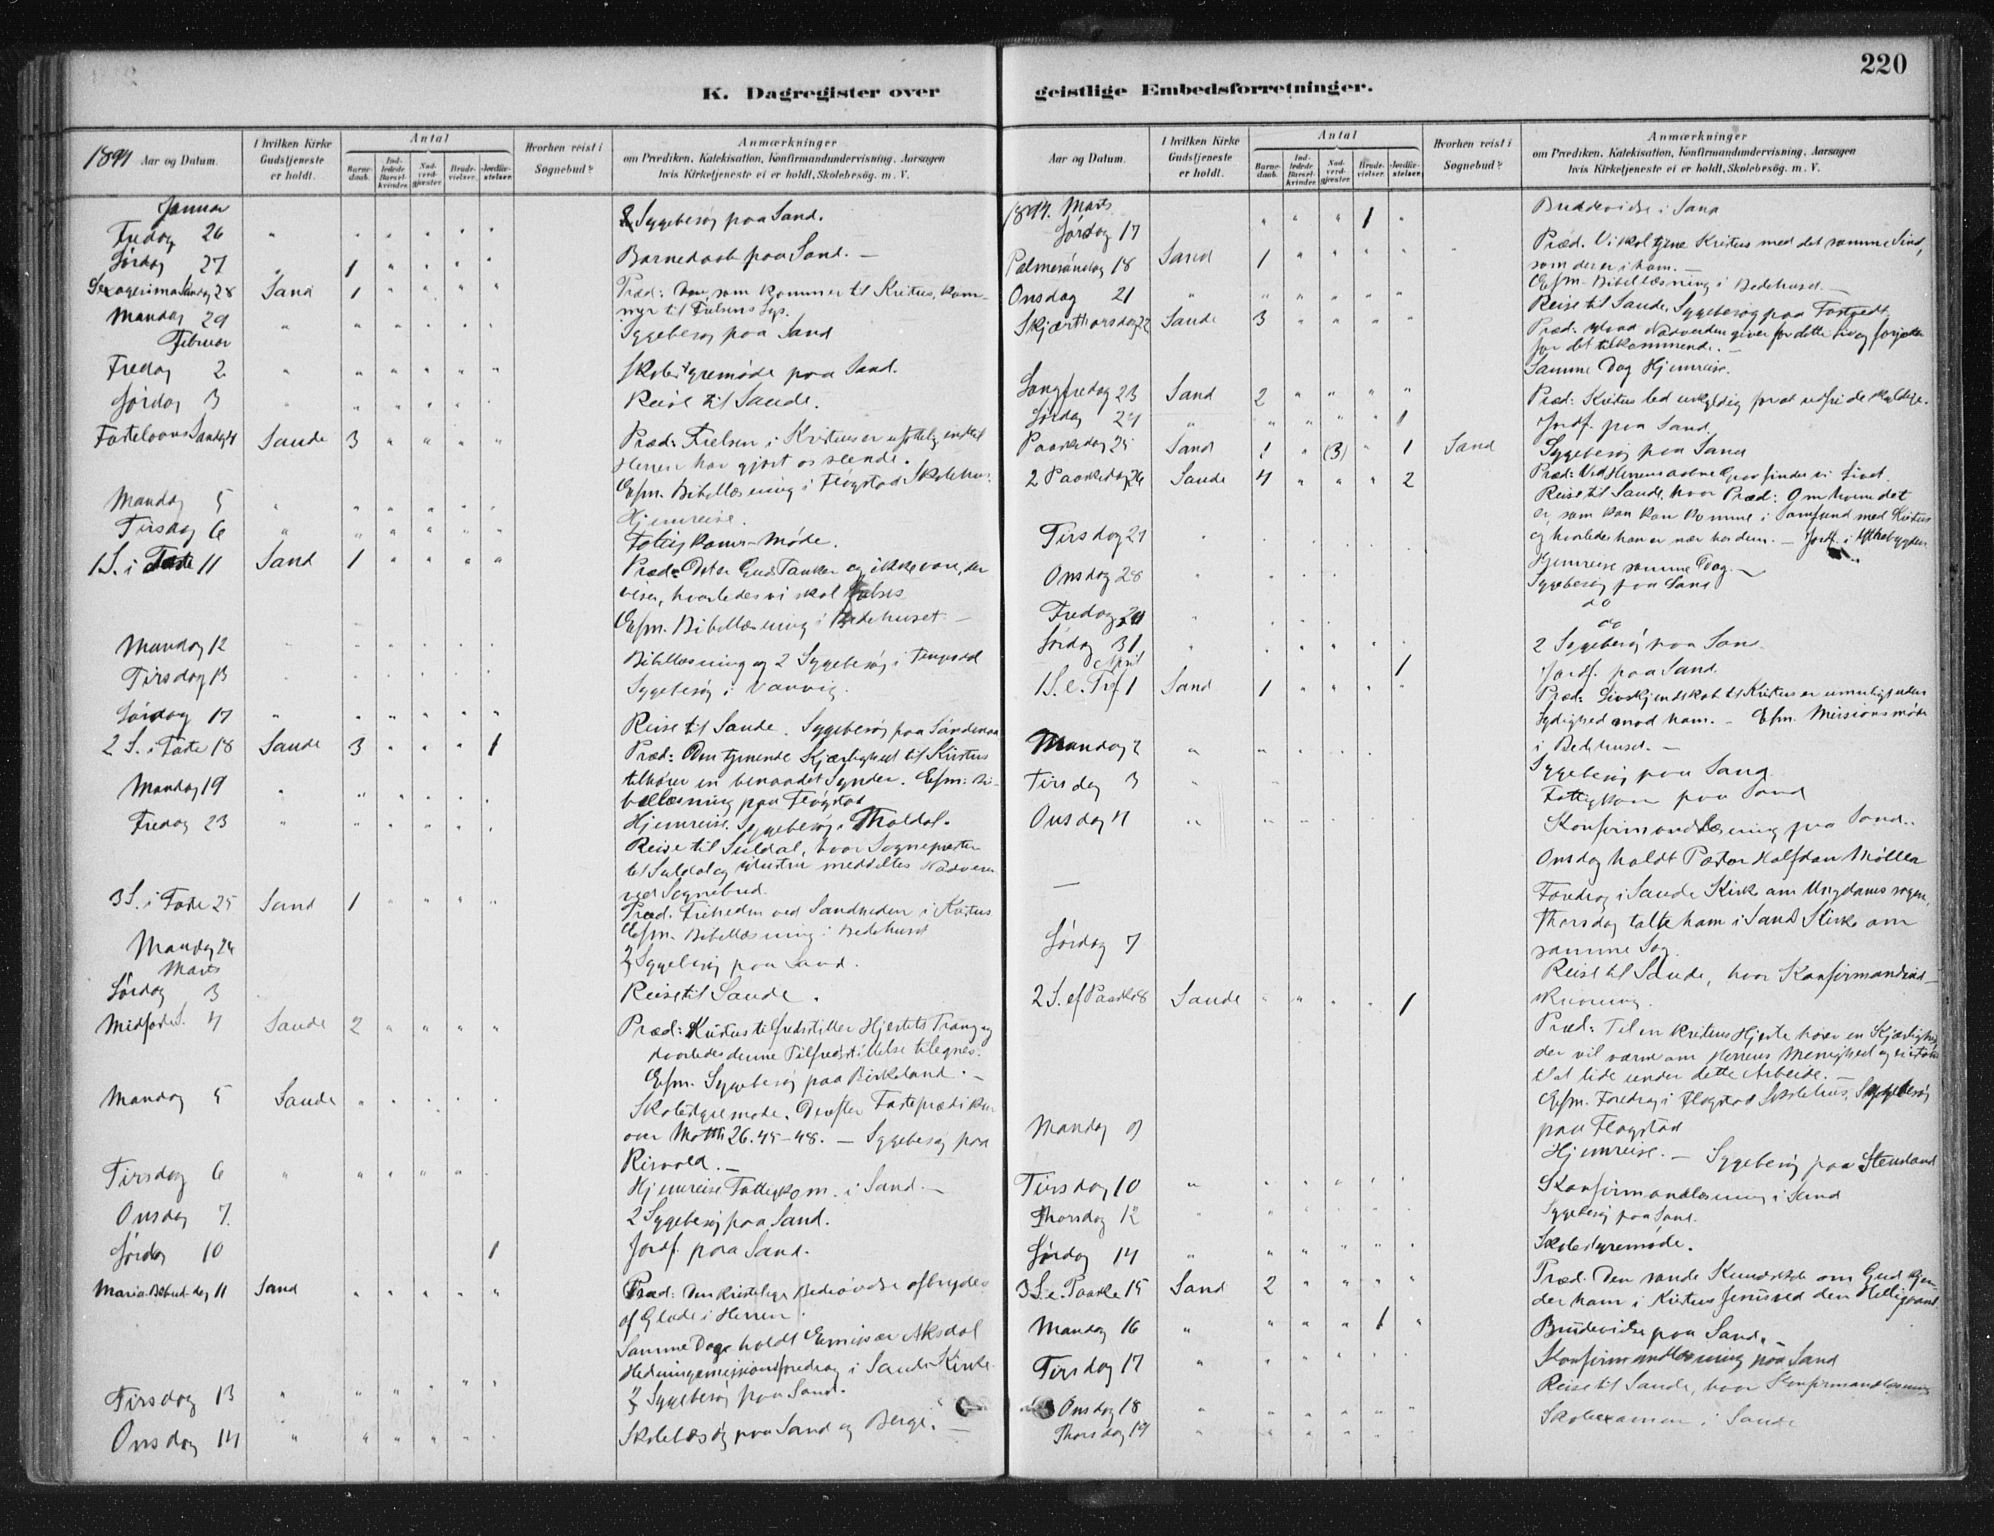 220
K. Dagregister over geistlige Embedsforretninger.
1894 Aar og Datum.
I hvilken Kirke Gudstjeneste er holdt.
Antal
Barnedaab.
Indledede Barselkvinder.
Nadverdgjester.
Brudevielser.
Jordfæstelser.
Hvorhen reist i Sognebud?
Anmærkninger
om Prædiken, Katekisation, Konfirmandundervisning, Aarsagen
hvis Kirketjeneste ei er holdt, Skolebesøg. m. V.
Januar
Fredag 26 " " " " " " 2 Sygebesøg paa Sand.
Lørdag 27 " 1 " " " " Barnedaab paa Sand. —
Sexagesima Søndag 28 Sand 1 " " " " Præd: som kommer til Kristus, kom-
mer til Frelsens Lys.
Mandag 29 " " " " " " Sygebesøg paa Sand
Februar
Fredag 2 " " " " " " Skolestyremøde paa Sand.
Lørdag 3 " " " " " " Reise til Sande.
Fastelavns Søndag 4 Sande 3 " " " " Præd: Frelsen i Kristus er
Herren har gjort os seende.
Efm. Bibellæsning i Fløgstad Skolehus.
Mandag 5 " " " " " " Hjemreise.
Tirsdag 6 " " " " " " Fattigkoms-Møde.
1 S. i Faste 11 Sand 1 " " " " Præd: Guds Tanker og ikke vore, der
viser, hvorledes vi skal frelses
Efm. Bibellæsning i Bedehuset —
Mandag 12 Bibellæsning og 2 Sygebesøg i
Tirsdag 13 Sygebesøg i Vanvig.
Lørdag 17 " " " " " " Reise til Sande. Sygebesøg paa
2 S. i Faste 18 Sande 3 " " " 1 Præd: Om tjenende Kjærlighed til Kristus
tilhører en benaadet Synder. Efm: Bi-
bellæsning paa Fløgstad
Mandag 19 " " " " " " Hjemreise. Sygebesøg i
Fredag 23 " " " " " " Reise til Suldal, hvor Sognepresten
til Suldal og meddeltes Nadveren
ved Sognebud.
3 S. i Faste 25 Sand 1 " " " " Præd. Friheden ved Sandheden i Kristus
Efm. Bibellæsning i Bedehuset
Mandag 26 2 Sygebesøg paa Sand.
Marts
Lørdag 3 Reise til Sande.
Midfaste S. 4 Sande 2 " " " " Præd: Kristus tilfredsstiller Hjertets Trang og
hvorledes denne Tilfredsstillelse tilegnes.
Efm. Sygebesøg paa Birkeland. —
Mandag 5 Sande " " " " " Skolestyremøde. Derefter Fasteprædiken
over Matth 26. 45-48. — Sygebesøg paa
Risvold. —
Tirsdag 6 " " " " " " Hjemreise Fattigkom. i Sand. —
Onsdag 7. 2 Sygebesøg paa Sand.
Lørdag 10 1 Jordf. paa Sand.
Maria Bebud. dag 11 Sand " " " " " Præd: Den kristelige Bedrøvelse afbrydes
af Glæde i Herren.
Samme Dag holdt Emissær Aksdal
Hedningemissionsforedrag i Sands Kirke
Tirsdag 13 " " " " " " 2 Sygebesøg paa Sand.
Onsdag 14 " " " " " " Skolebesøg paa Sand og Berge. —
Aar og Datum.
I hvilken Kirke Gudstjeneste er holdt.
Antal
Barnedaab.
Indledede Barselkvinder.
Nadverdgjester.
Brudevielser.
Jordfæstelser.
Hvorhen reist i Sognebud?
Anmærkninger
om Prædiken, Katekisation, Konfirmandundervisning, Aarsagen
hvis Kirketjeneste ei er holdt, Skolebesøg. m. V.
1894. Marts
Lørdag 17 " " " 1 " Brudevielse i Sand
Palmesøndag 18 Sand 1 " " " " Præd. Vi skal tjene Kristus med det samme Sind,
som der er i ham. —
Efm. Bibellæsning i Bedehuset. —
Onsdag 21 " " " " " " Reise til Sande. Sygebesøg paa
Skjærthorsdag 22 Sande 3 " " " " Præd: Hvad Nadverden giver for dette Liv og
for det tilkommende. —
Samme Dag Hjemreise.
Langfredag 23 Sand 2 " " " " Præd: Kristus led uskyldig for at udfri de skyldige.
Lørdag 24 " " " " " 1 Jordf. paa Sand.
Paaskedag 25 Sand 1 " (3) " 1 Sand Sygebesøg paa Sand
Præd: Ved Herrens aabne Grav finder vi Livet.
2 Paaskedag 26 Sande 4 " " " 2 Reise til Sande, hvor Præd: Om hvem det
er, som kan komme i Samfund med Kristus
og hvorledes han er nær hos dem. — Jordf. i
Hjemreise samme Dag. —
Tirsdag 27 Sygebesøg paa Sand
Onsdag 28 do
Fredag 30 do
Lørdag 31 2 Sygebesøg paa Sand
April
1 Jordf. paa Sand.
1 S. e. 1 Sand 1 " " " " Præd: Livskjendskab til Kristus er umuligt uden
Lydighed mod ham. — Efm. Missionsmøde
i Bedehuset. —
Mandag 2 " Sygebesøg paa Sand
Tirsdag 3 " Fattigkom paa Sand
Onsdag 4 " Konfirmandlæsning paa Sand.
— Onsdag holdt Pastor Halfdan Møller
Foredrag i Sande Kirke om Ungdomssagen,
Thorsdag talte ham i Sand Kirke om
samme Sag
Lørdag 7 Reise til Sande, hvor Konfirmandind-
skrivning.
2 S. ef Paaske 8 Sande " " " " 1 Præd: Til en kristens Hjerte hører en Kjærlighed
der vil værne om Herrens Menighed og
at lide under dette Arbeide. —
Efm. Foredrag i Fløgstad Skolehus, Sygebesøg
paa Fløgstad
Mandag 9 Hjemreise. — Sygebesøg paa Stensland
Tirsdag 10 " Konfirmandlæsning i Sand
Thorsdag 12 Sygebesøg paa Sand.
Lørdag 14 " Skolestyremøde.
3 S. e. Paaske 15 Sand 2 " " " " Præd. Den sande Kundskab om Gud kjen-
der ham i Kristus Jesus ved den Helligaand
Mandag 16 " " " " 1 " Brudevielse paa Sand. —
Tirsdag 17 " Konfirmandlæsning paa Sand
Onsdag 18 " Reise til Sande, hvor Konfirmandlæsning
Thorsdag 19 " Skoleexamen i Sande